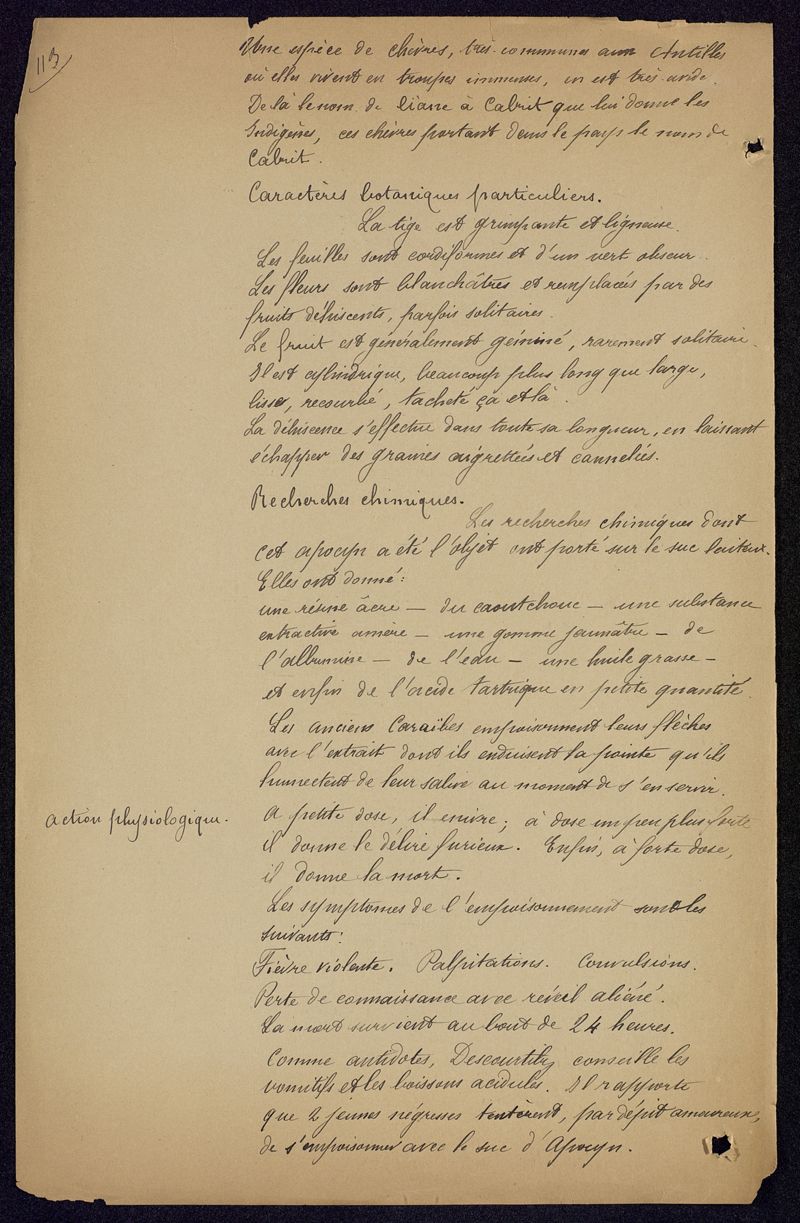 113
Une espèce de chèvres, très communes aux Antilles
où elles vivent en troupes immenses, en est très avide.
De là le nom de liane à Cabrit que lui donne les
Indigènes, ces chèvres portant dans le pays le nom de
Cabrit.
Caractères botaniques particuliers.
La tige est grimpante et ligneuse.
Les feuilles sont cordiformes et d'un vert obscur.
Les fleurs sont blanchâtres et remplacés par des
fruits déhiscents, parfois solitaires.
Le fruit est généralement géminé, rarement solitaire.
Il est cylindrique, beaucoup plus long que large,
lisse, recourbé, tacheté ça et là.
La déhiscence s'effectue dans toute sa longueur, en laissant
échapper des graines aigrettées et cannelés.
Recherches chimiques.
Les recherches chimiques dont
cet apocyn a été l'objet ont porté sur le suc laiteux.
Elles ont donné:
une résine âcre — du caoutchouc — une substance
extractive amère — une gomme jaunâtre — de
l'albumine — de l'eau — une huile grasse —
et enfin de l'acide tartrique en petite quantité.
Les anciens Caraïbes empoisonnent leurs flèches
avec l'extrait dont ils enduisent la pointe qu'ils
humectent de leur salive au moment de s'en servir.
action physiologique.
A petite dose, il enivre; à dose un peu plus forte
il donne le délire furieux. Enfin, à forte dose,
il donne la mort.
Les symptomes de l'empoisonnement sont les
suivants:
Fièvre violente. Palpitations. Convulsions.
Perte de connaissance avec réveil aliéné.
La mort survient au bout de 24 heures.
Comme antidotes, Descourtilz conseille les
vomitifs et les boissons acidulés. Il rapporte
que 2 jeunes négresses tentèrent, par dépit amoureux,
de s'empoisonner avec le suc d'Apocyn.